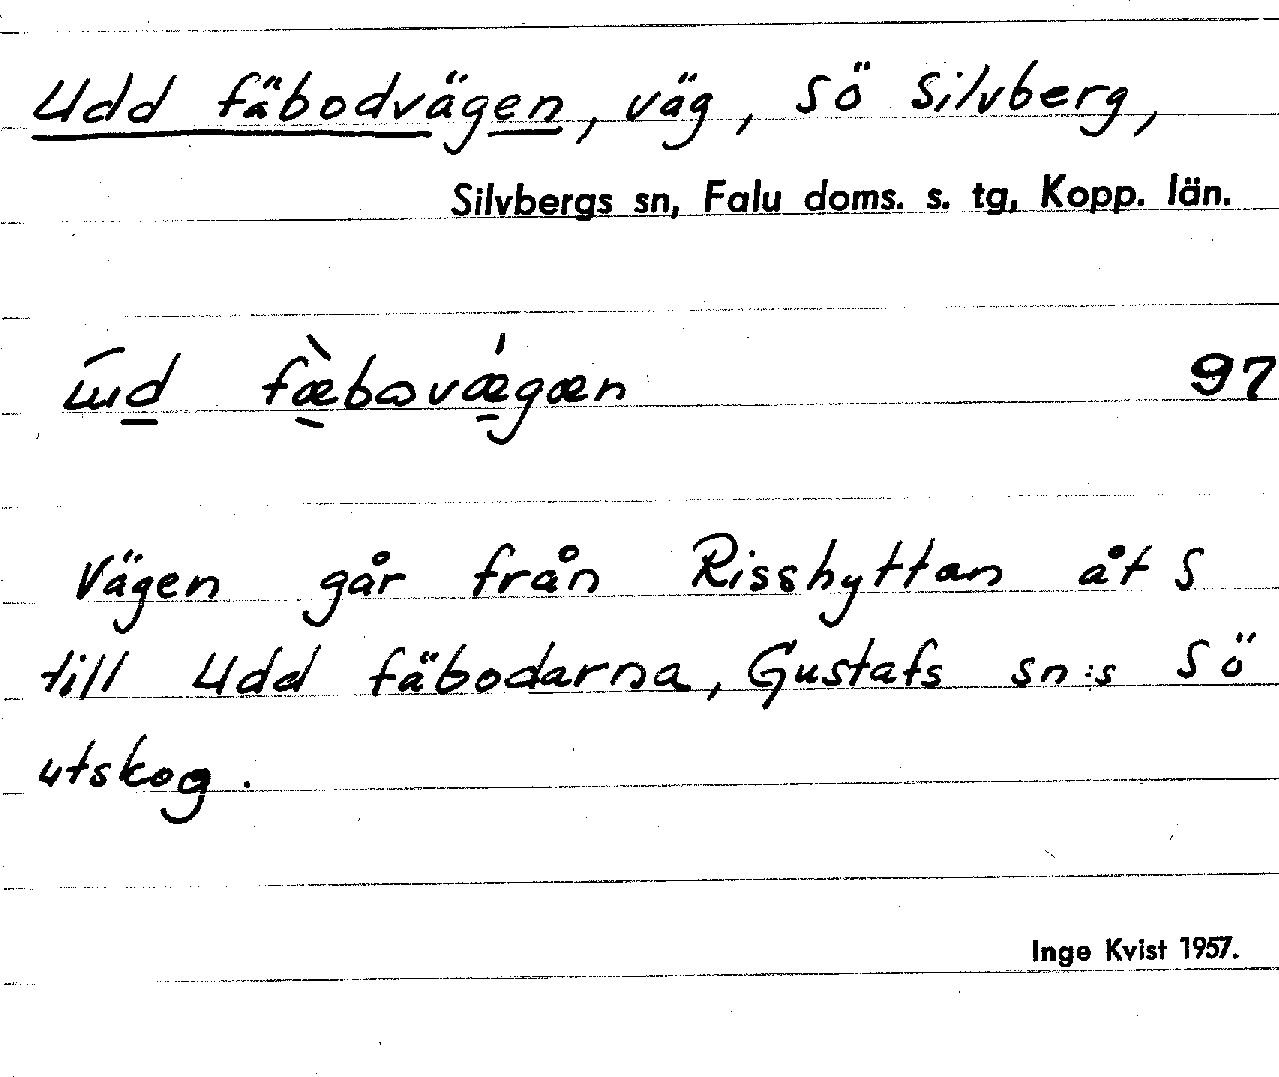 Udd fäbodvägen, väg, Sö Silvberg,
Silvbergs sn, Falu doms. s. tg, Kopp. län.
97
Vägen går från Risshyttan åt S
till Udd fäbodarna, Gustafs sn:s Sö
utskog.
Inge Kvist 1957.